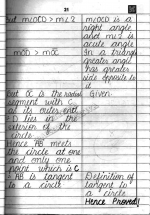 25
But m∠OCD > m∠2
m∠OCD is a
right angle
and m∠2 is
acute angle
mOD > mOC
In a triangle
greater angle
has greater
side opposite to
it
But OC is the radial
Given
segment with C
as its outer end
D lies in the
exterior of the
circle
Hence AB meets
the circle at one
and only one
point which is C
AB is tangent
Definition of
to a circle
tangent to
a circle
Hence Proved!